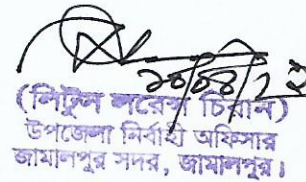 (লিটুস লরেন্স চিরান)
উপজেলা নির্বাহী অফিসার
জামালপুর সদর, জামালপুর।